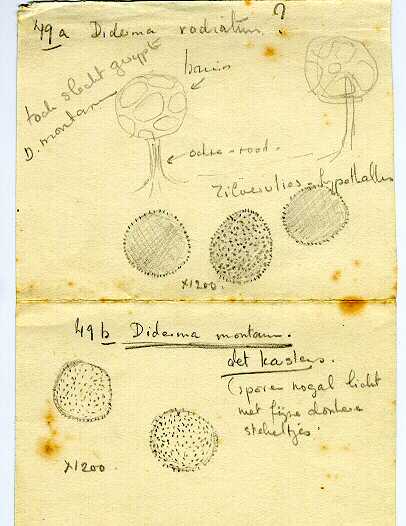 49a Diderma radiatum ?
toch slecht gerijpt
D. montanum
bruin
oker-rood
zilvervlies-hypothallus
X1200.
49b Diderma montanum.
det kasters.
Sporen nogal licht
met fijne donkere
stekeltjes.
X1200.